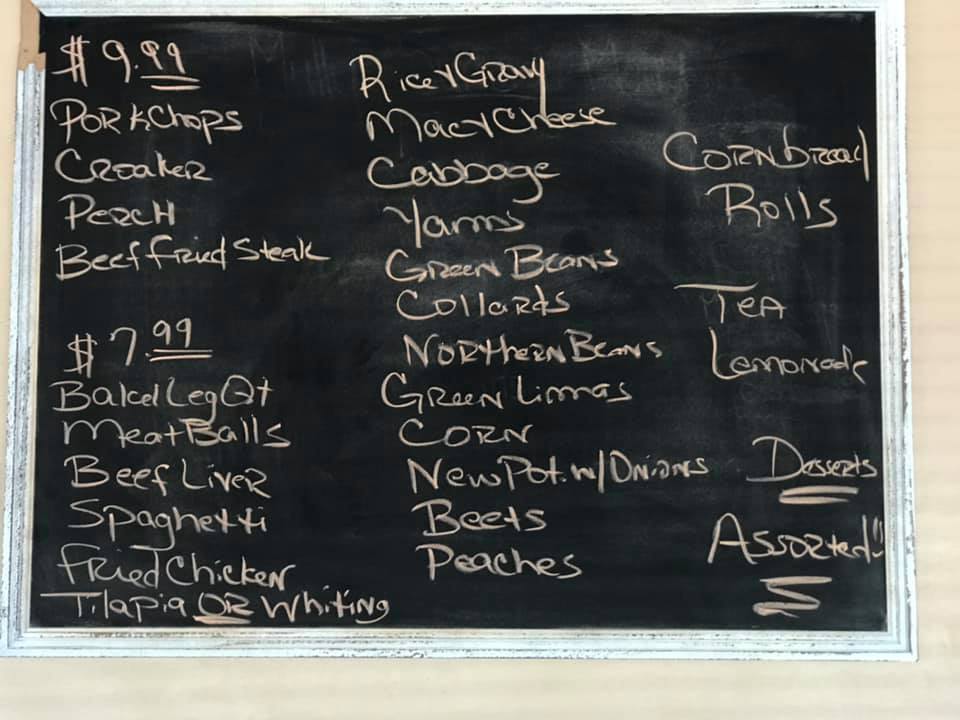 $ 9.99
Pork Chops
Croaker
Perch
Beef Fried Steak
$ 7.99
Baked Leg Qt
Meat Balls
Beef Liver
Spaghetti
Fried Chicken
Tilapia OR Whiting
Rice & Gravy
Mac & Cheese
Cabbage
Yams
Green Beans
Collards
Northern Beans
Green Limas
Corn
New Pot. w/ Onions
Beets
Peaches
Cornbread
Rolls
Tea
Lemonade
Desserts
Assorted!!